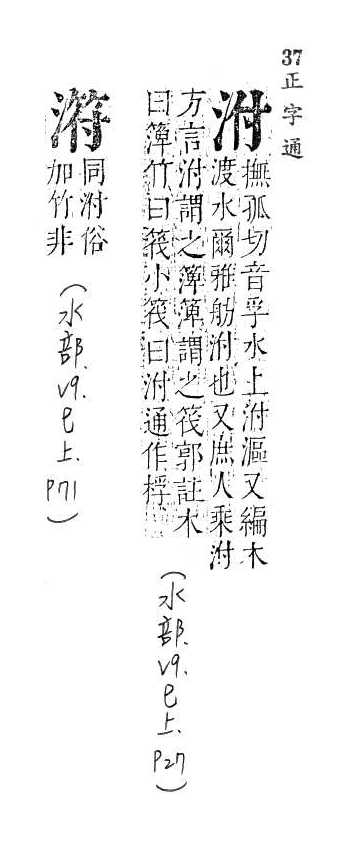 37正字通
泭
撫孤切音孚水上泭漚又編木
渡水爾雅舫泭也又庶人乘泭
方言泭謂之䉬䉬謂之筏郭註木
曰簰竹曰筏小筏曰泭通作桴
(水部.V9.巳上.P27)
同泭俗
加竹非
(水部.V9.巳上.P71)